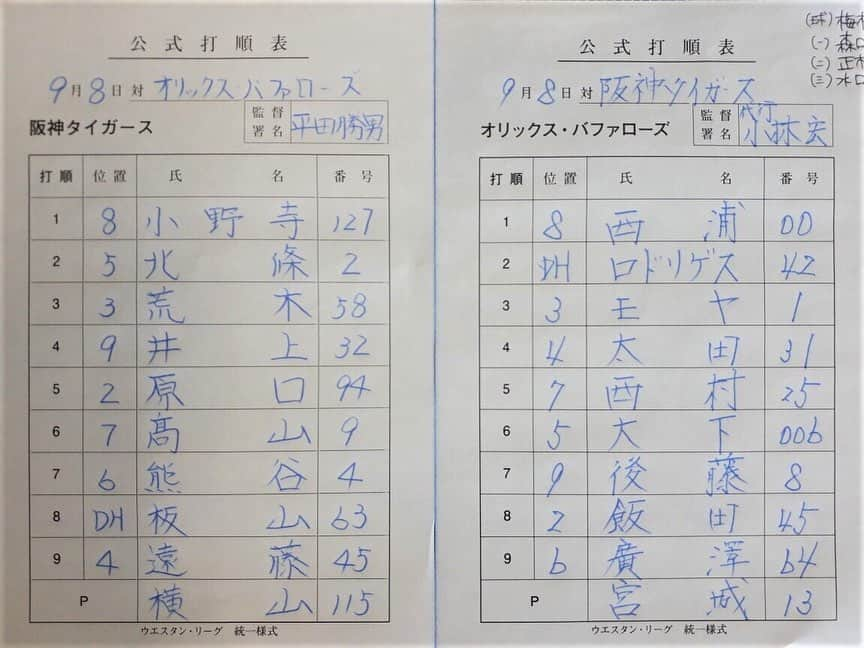 公式打順表
9月8日 対 オリックス・バファローズ
阪神タイガース
監督署名 平田勝男
打順 位置 氏名 番号
1 8 小野寺 127
2 5 北條 2
3 3 荒木 58
4 9 井上 32
5 2 原口 94
6 7 髙山 9
7 6 熊谷 4
8 DH 板山 63
9 4 遠藤 45
P 横山 115
ウエスタン・リーグ 統一様式
公式打順表
9月8日 対 阪神タイガース
オリックス・バファローズ
監督署名 代行 小林宏
打順 位置 氏名 番号
1 8 西浦 00
2 DH ロドリゲス 42
3 3 モヤ 1
4 4 太田 31
5 7 西村 25
6 5 大下 006
7 9 後藤 8
8 2 飯田 45
9 6 廣澤 64
P 宮城 13
ウエスタン・リーグ 統一様式
(球) 梅
(一) 森口
(二) 正木
(三) 水口